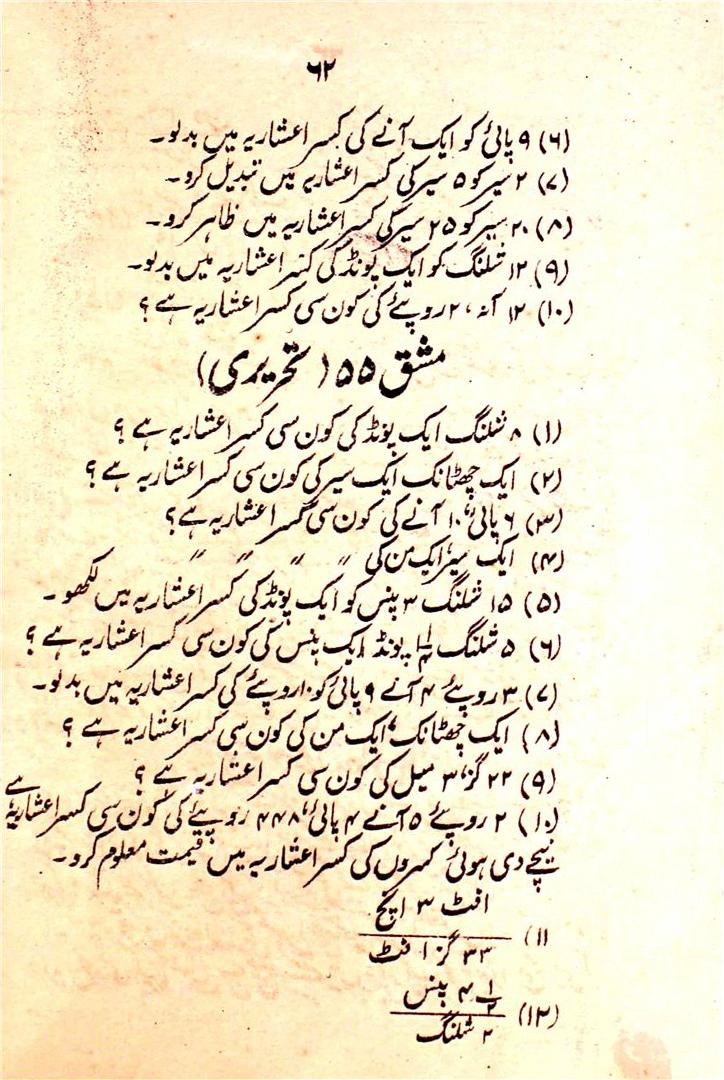 ۶۲
(۶) ۹ پائی کو ایک آنے کی کسر اعشاریہ میں بدلو۔
(۷) ۲ سیر کو ۵ سیر کی کسر اعشاریہ میں تبدیل کرو۔
(۸) ۲۰ سیر کو ۲۵ سیر کی کسر اعشاریہ میں ظاہر کرو۔
(۹) ۱۲ شلنگ کو ایک پونڈ کی کسر اعشاریہ میں بدلو۔
(۱۰) ۱۲ آنہ، ۲ روپئے کی کون سی کسر اعشاریہ ہے ؟
مشق ۵۵ (تحریری)
(۱) ۸ شلنگ ایک پونڈ کی کون سی کسر اعشاریہ ہے ؟
(۲) ایک چھٹانک ایک سیر کی کون سی کسر اعشاریہ ہے ؟
(۳) ۶ پائی، ۱۰ آنے کی کون سی کسر اعشاریہ ہے؟
(۴) ایک سیر، ایک من کی " " " "
(۵) ۱۵ شلنگ ۳ پنس کو ایک پونڈ کی کسر اعشاریہ میں لکھو۔
(۶) ۵ شلنگ پونڈ ایک پنس کی کون سی کسر اعشاریہ ہے ؟
(۷) ۳ روپئے ۴ آنے ۹ پائی کو ۱۰ روپئے کی کسر اعشاریہ میں بدلو۔
(۸) ایک چھٹانک، ایک من کی کون سی کسر اعشاریہ ہے ؟
(۹) ۲۲ گز، ۳ میل کی کون سی کسر اعشاریہ ہے ؟
(۱۰) ۲ روپئے ۵ آنے ۴ پائی، ۴۴۸ روپیے کی کون سی کسر اعشاریہ ہے
نیچے دی ہوئی کسروں کی کسر اعشاریہ میں قیمت معلوم کرو۔
۱ فٹ ۳ انچ
(۱۱
۳۳ گز ۱ فٹ
۴ ۱/۲ پنس
(۱۲)
۲ شلنگ